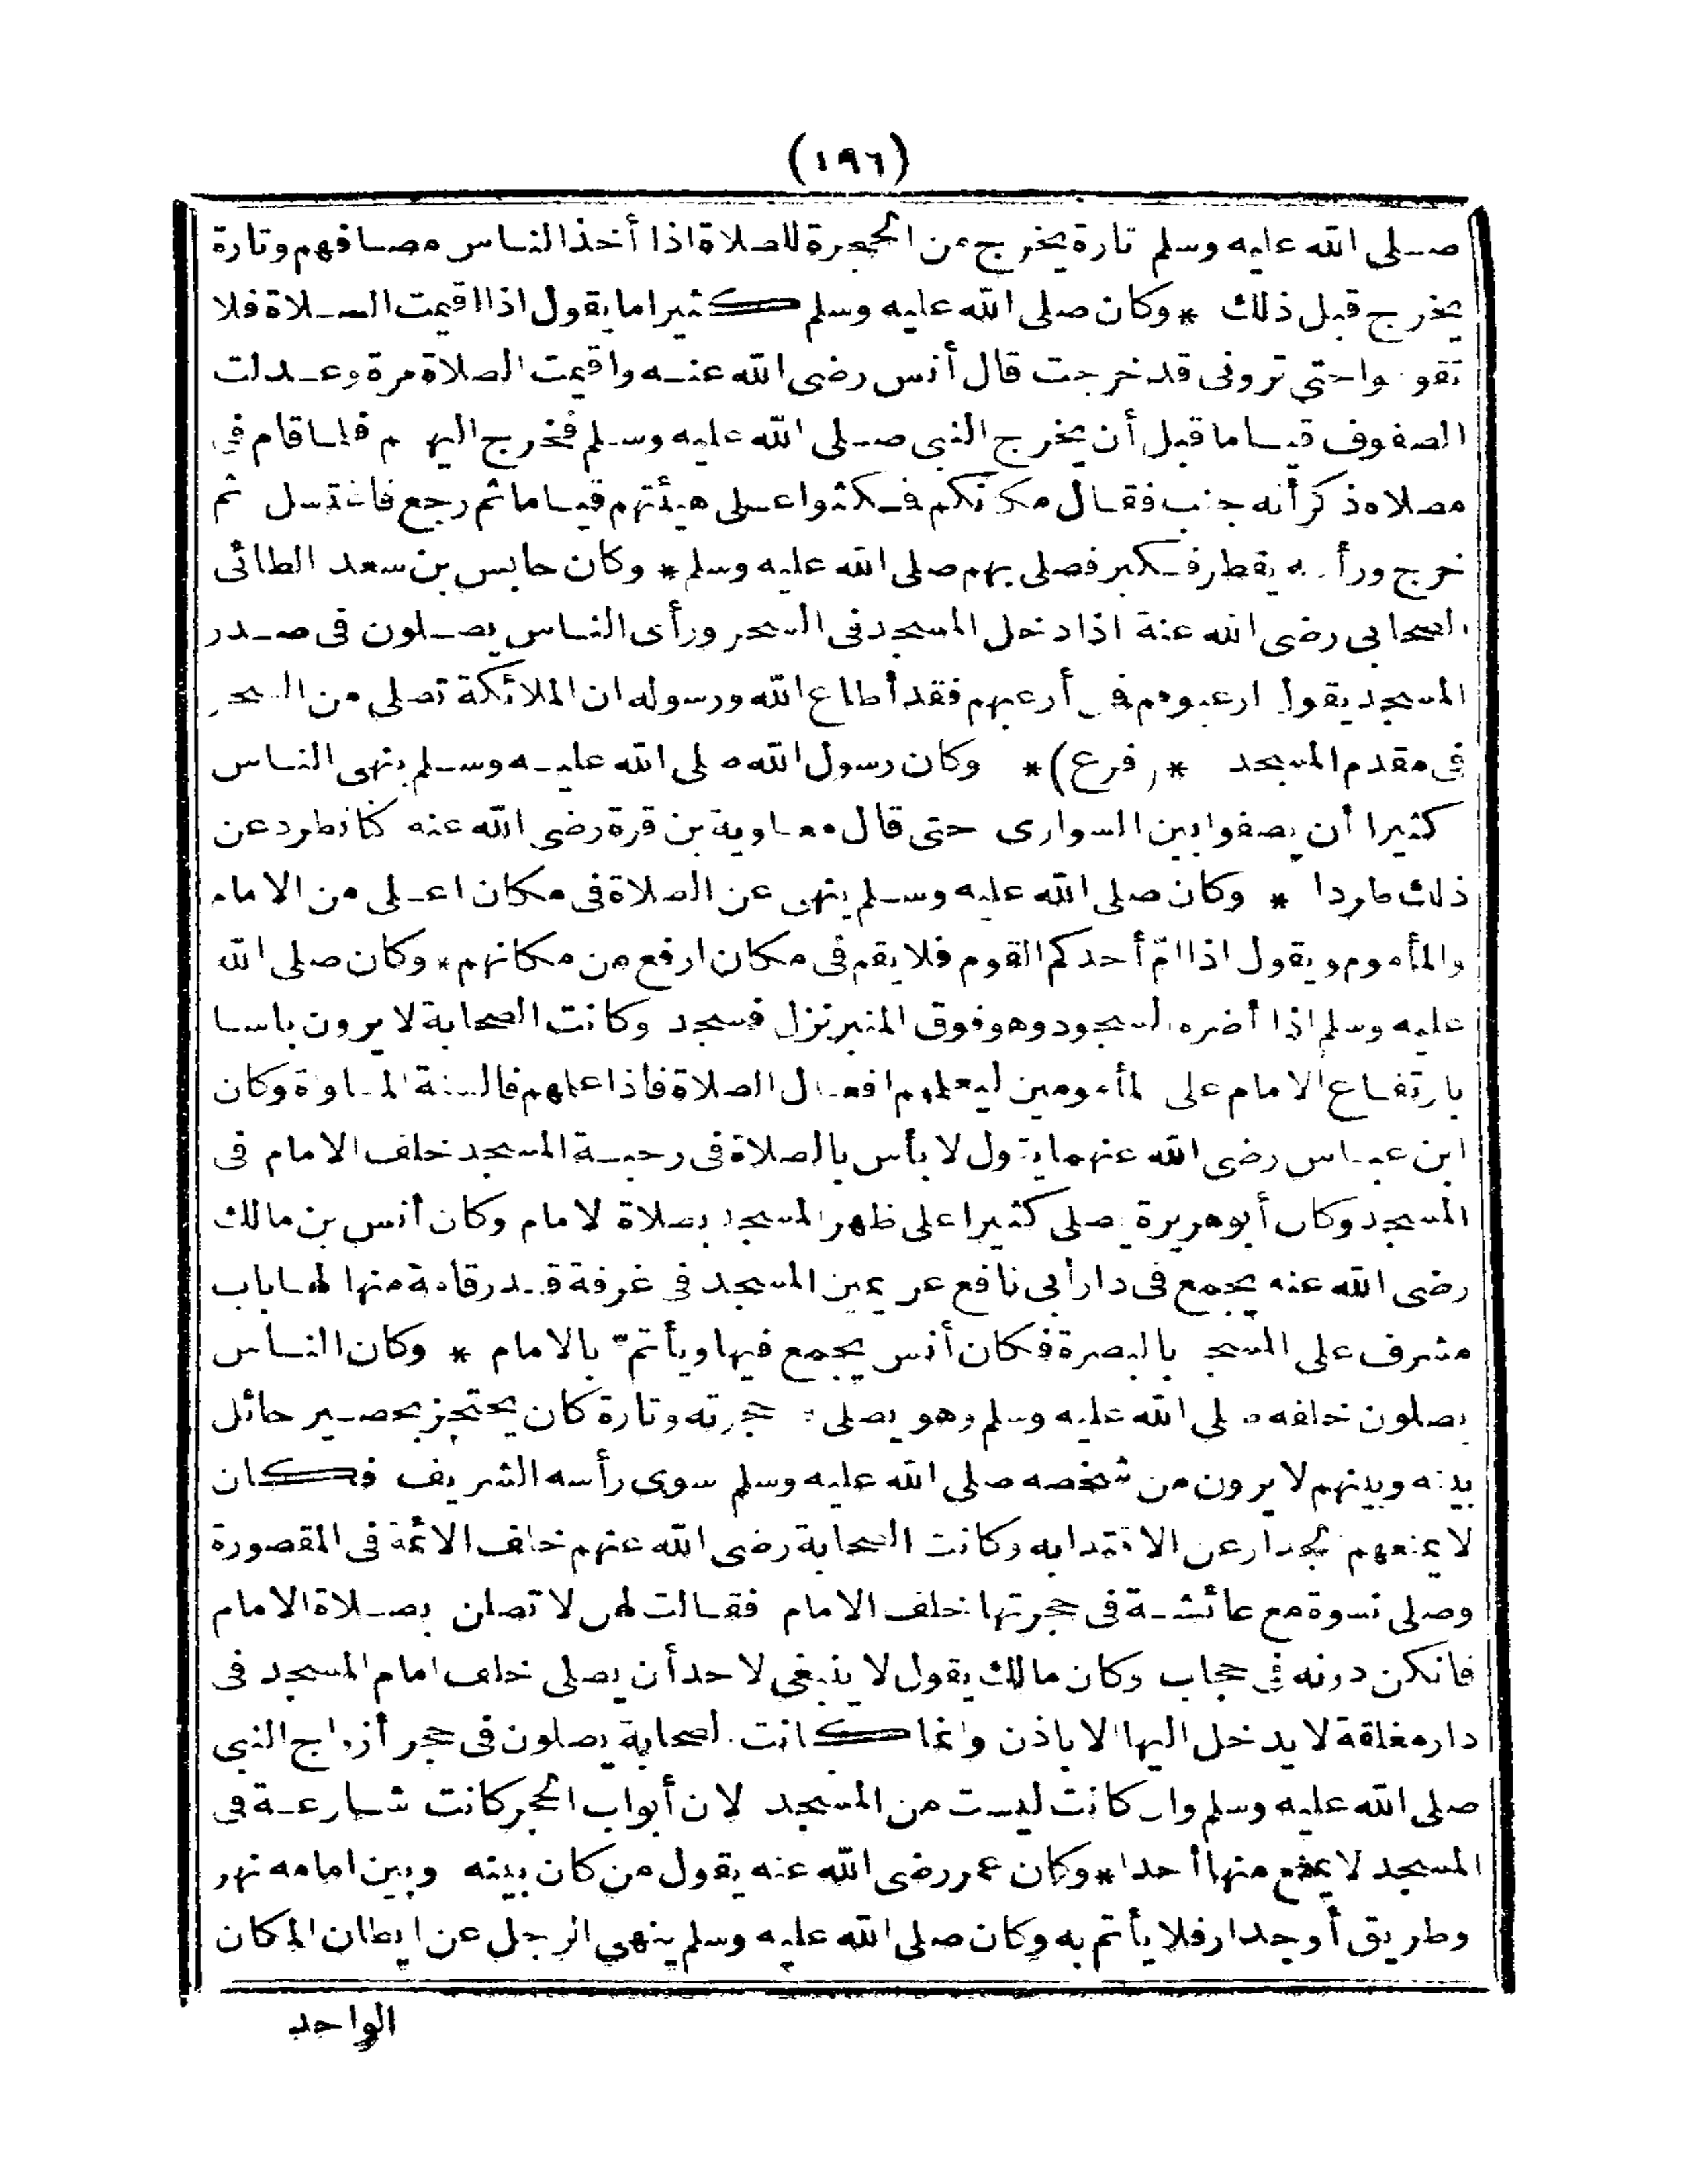 (١٩٦)
صلى الله عليه وسلم تارة يخرج من الحجرة للصلاة اذا أخذ الناس مصافهم وتارة
يخرج قبل ذلك * وكان صلى الله عليه وسلم كثيرا ما يقول اذا اقيمت الصلاة فلا
تقوموا حتى ترونى قد خرجت قال أنس رضى الله عنه واقيمت الصلاة مرة وعدلت
الصفوف قياما قبل أن يخرج النبى صلى الله عليه وسلم فخرج اليهم فلما قام فى
مصلاه ذكر أنه جنب فقال مكانكم فمكثوا على هيئتهم قياما ثم رجع فاغتسل ثم
خرج ورأسه يقطر فكبر فصلى بهم صلى الله عليه وسلم * وكان حابس بن سعد الطائى
الصحابى رضى الله عنة اذا دخل المسجد فى السحر ورأى الناس يصلون فى صدر
المسجد يقول ارعبوهم فمن أرعبهم فقد أطاع الله ورسوله ان الملائكة تصلى من السحر
فى مقدم المسجد *(فرع)* وكان رسول الله صلى الله عليه وسلم ينهى الناس
كثيرا أن يصفوا بين السوارى حتى قال معاوية بن قرة رضى الله عنه كنا نطرد عن
ذلك طردا * وكان صلى الله عليه وسلم ينهى عن الصلاة فى مكان اعلى من الامام
والمأموم ويقول اذا امّ أحدكم القوم فلا يقم فى مكان ارفع من مكانهم * وكان صلى الله
عليه وسلم اذا أضره السجود وهو فوق المنبر نزل فسجد وكانت الصحابة لا يرون باسا
بارتفاع الامام على المأمومين ليعلمهم افعال الصلاة فاذا علمهم فالسنة المساواة وكان
ابن عباس رضى الله عنهما يقول لا بأس بالصلاة فى رحبة المسجد خلف الامام فى
المسجد وكان أبو هريرة يصلى كثيرا على ظهر المسجد بصلاة الامام وكان أنس بن مالك
رضى الله عنه يجمع فى دار أبى نافع عن يمين المسجد فى غرفة قدر قامة منها لها باب
مشرف على المسجد بالبصرة فكان أنس يجمع فيها ويأتمّ بالامام * وكان الناس
يصلون خلفه صلى الله عليه وسلم وهو يصلى حجرته وتارة كان يحتجز بحصير حائل
بينه وبينهم لا يرون من شخصه صلى الله عليه وسلم سوى رأسه الشريف فكان
لا يمنعهم الجدار عن الاقتدا به وكانت الصحابة رضى الله عنهم خلف الائمة فى المقصورة
وصلى نسوة مع عائشة فى حجرتها خلف الامام فقالت لهن لا تصلن بصلاة الامام
فانكن دونه فى حجاب وكان مالك يقول لا ينبغى لاحد أن يصلى خلف امام المسجد فى
دار مغلقة لا يدخل اليها الا باذن وانما كانت الصحابة يصلون فى حجر أزواج النبى
صلى الله عليه وسلم وان كانت ليست من المسجد لان أبواب الحجر كانت شارعة فى
المسجد لا يمنع منها أحدا * وكان عمر رضى الله عنه يقول من كان بينه وبين امامه نهر
وطريق أو جدار فلا يأتم به وكان صلى الله عليه وسلم ينهى الرجل عن ايطان المكان
الواحد